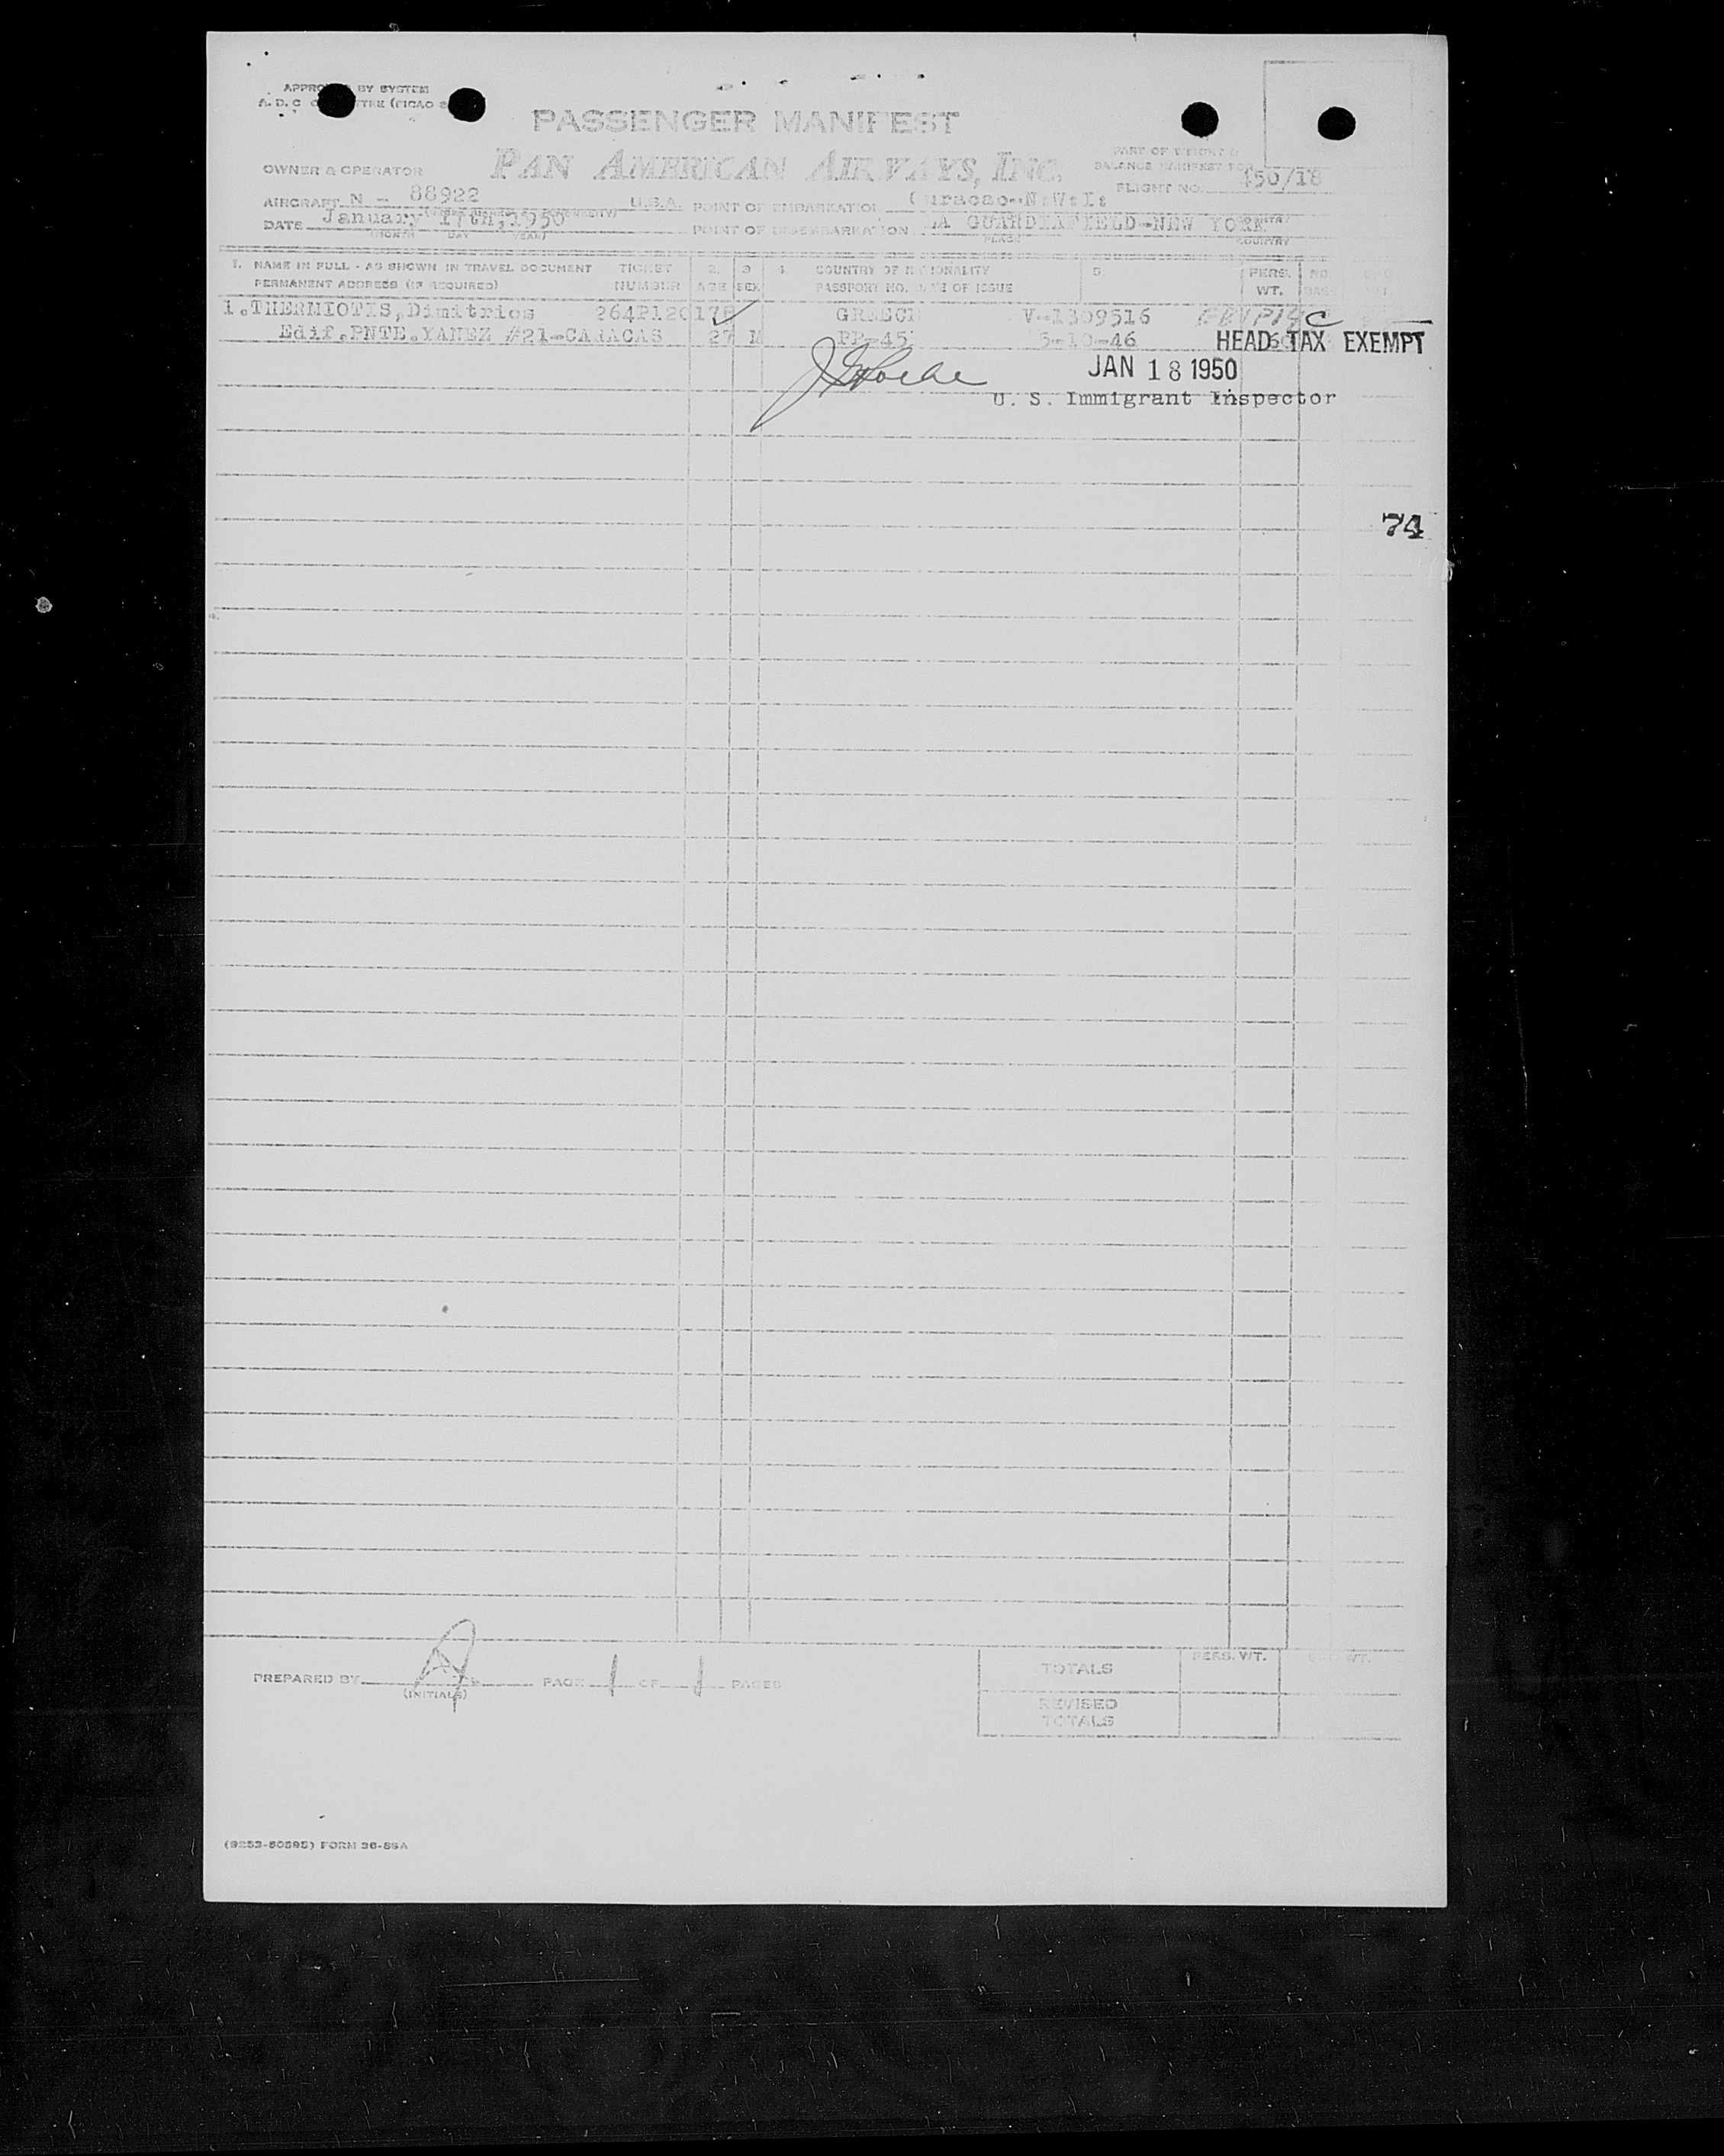 APPROVED BY SYSTEM
A. D. C.
PASSENGER MANIFEST
PAN AMERICAN AIRWAYS, INC.
PART OF WEIGHT &
BALANCE MANIFEST FOR
OWNER & OPERATOR
FLIGHT NO. 450/18
AIRCRAFT N - 88922 U.S.A. POINT OF EMBARKATION Curacao--N.W.I.
DATE January 17th, 1950 POINT OF DISEMBARKATION LA GUARDIAFIELD-NEW YORK
(MONTH DAY YEAR) PLACE COUNTRY
1. NAME IN FULL - AS SHOWN IN TRAVEL DOCUMENT TICKET 2. 3 4 COUNTRY OF NATIONALITY 5. PERS. NO.
PERMANENT ADDRESS (IF REQUIRED) NUMBER AGE SEX PASSPORT NO. DATE OF ISSUE WT.
1.THERMIOTIS,Dimitrios GREECE V--1309516 C
Edif.PNTE.YANEZ #21-CARACAS 27 M PP-45 5-10-46 HEAD TAX EXEMPT
JAN 18 1950
U. S. Immigrant Inspector
74
PREPARED BY (INITIALS) PAGE 1 OF 1 PAGES
TOTALS PERS. WT.
REVISED
TOTALS
(9253-50595) FORM 36-89A